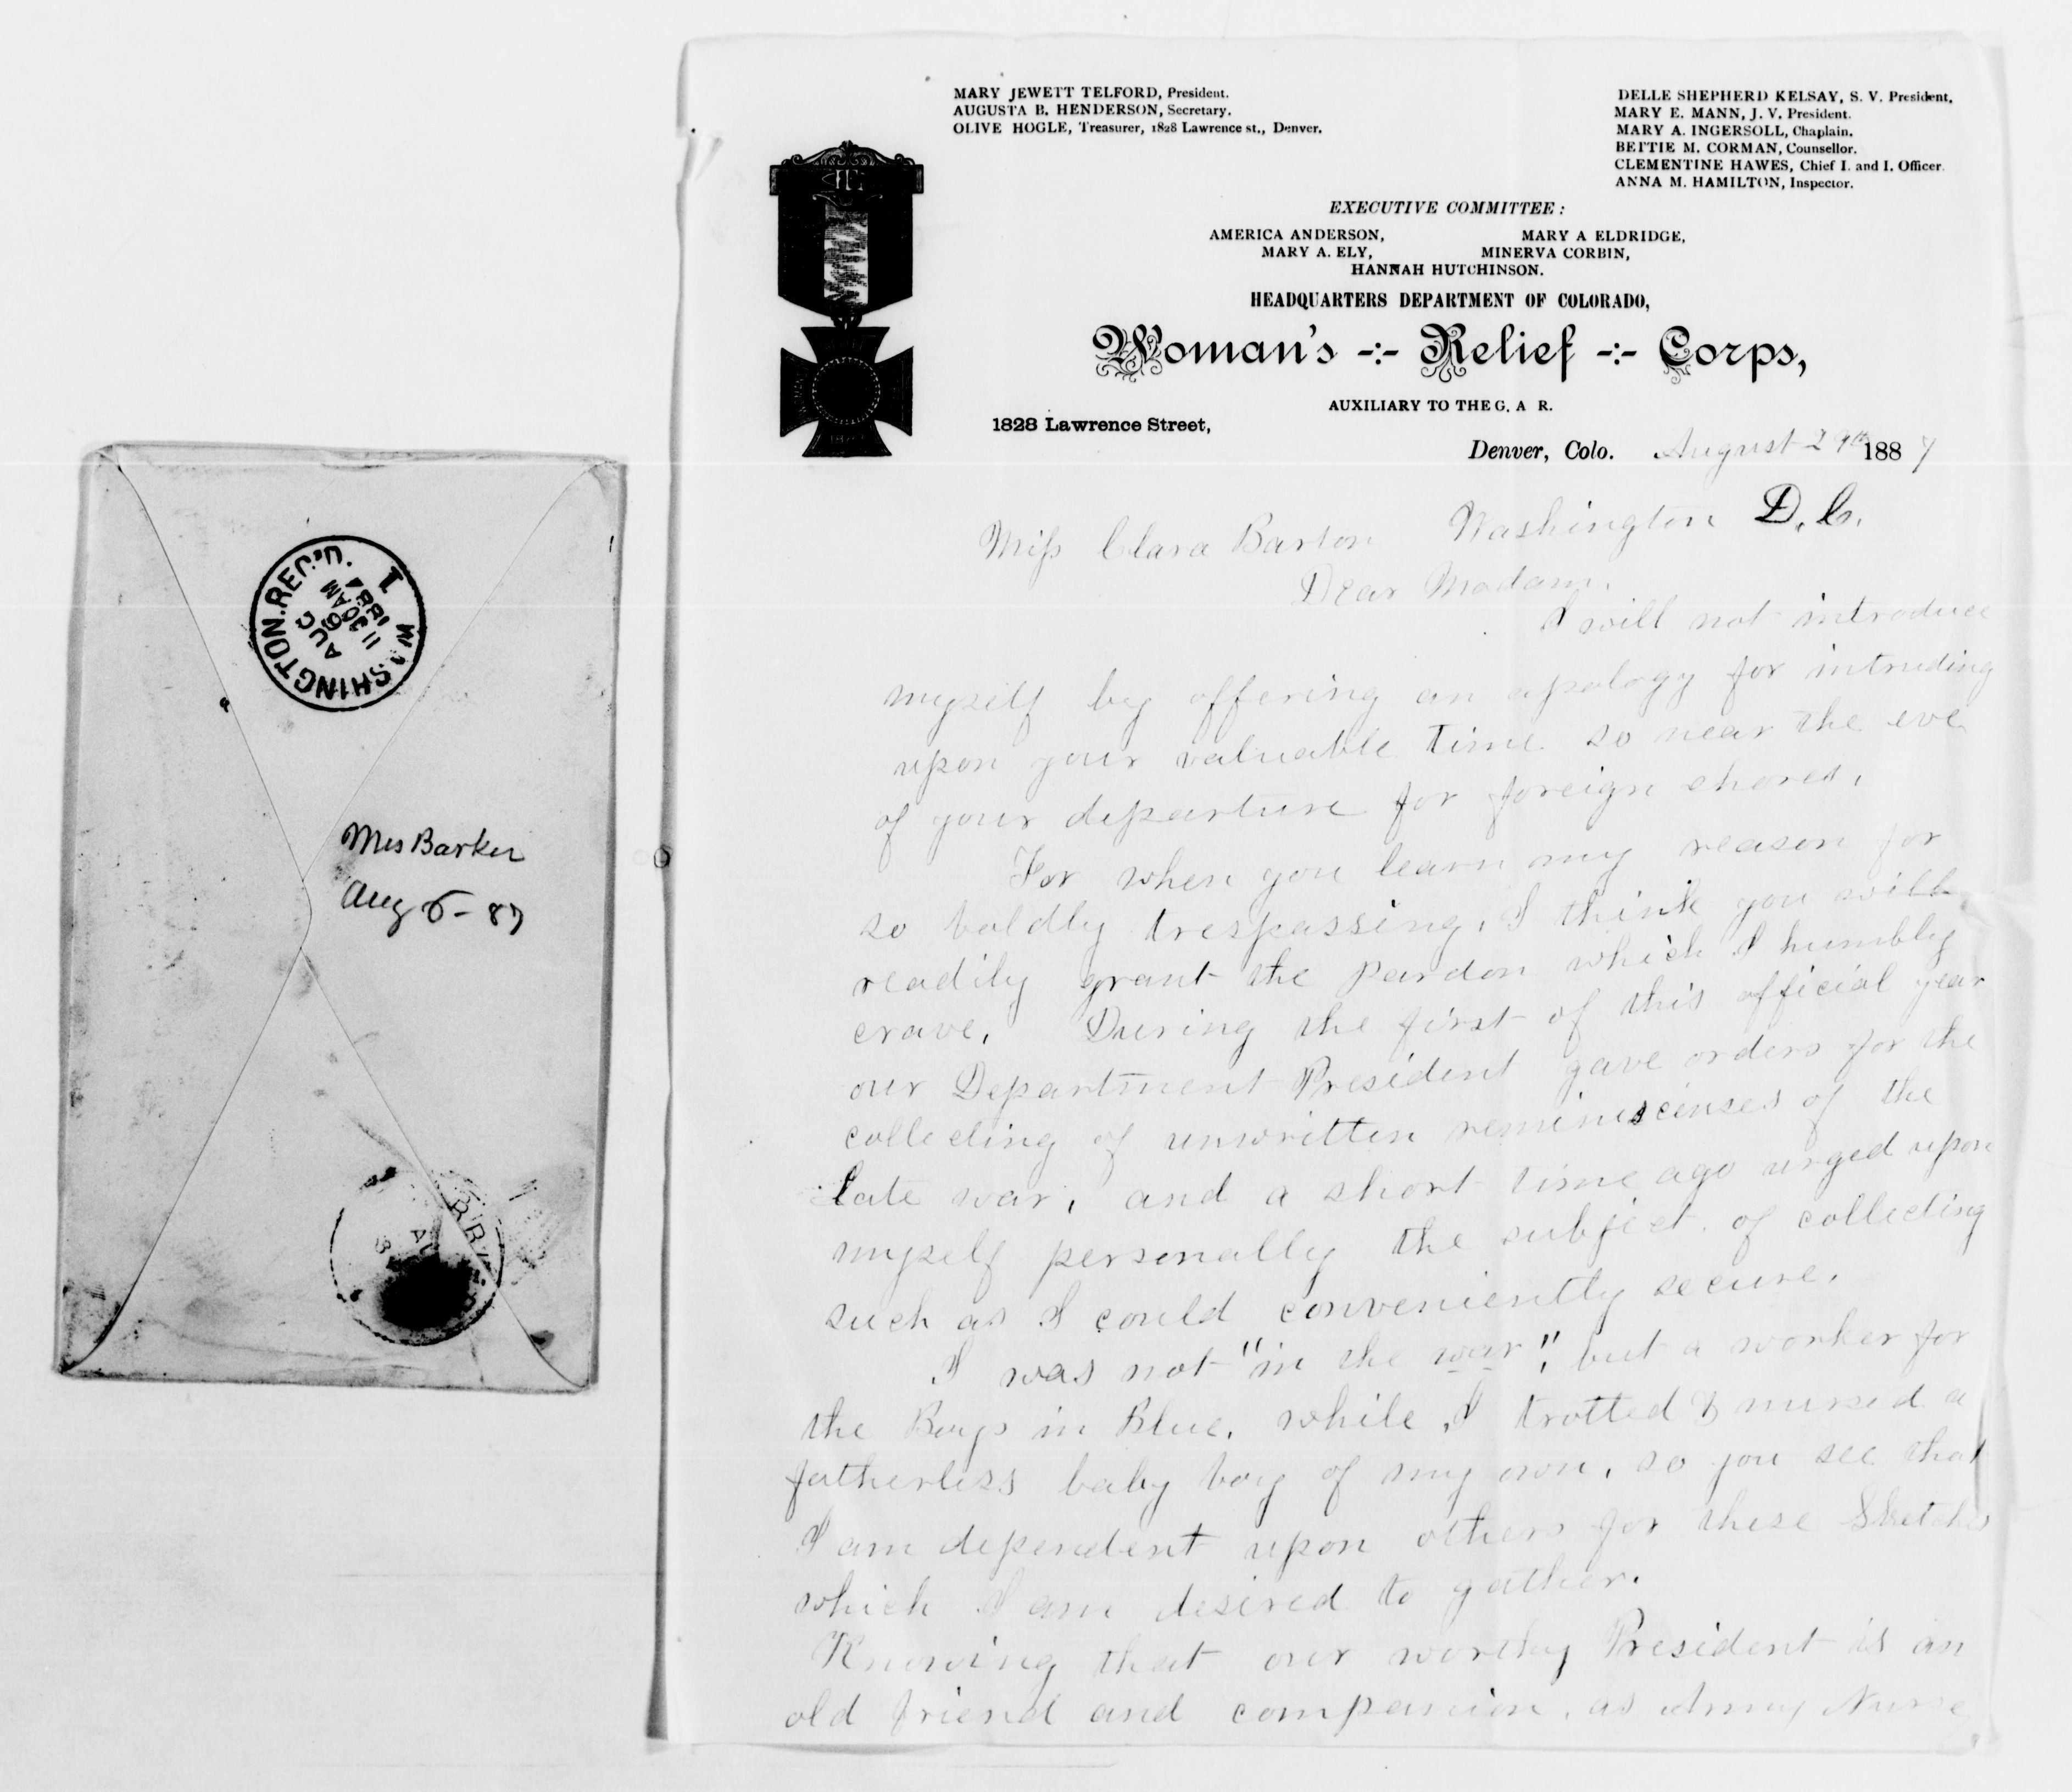 WASHINGTON. REC'D.
AUG
6
11 30 AM
1887
1
Mrs Barker
Aug 6 - 87
MARY JEWETT TELFORD, President.
AUGUSTA B. HENDERSON, Secretary.
OLIVE HOGLE, Treasurer, 1828 Lawrence st., Denver.
DELLE SHEPHERD KELSAY, S. V. President,
MARY E. MANN, J. V. President.
MARY A. INGERSOLL, Chaplain.
BETTIE M. CORMAN, Counsellor.
CLEMENTINE HAWES, Chief I. and I. Officer.
ANNA M. HAMILTON, Inspector.
EXECUTIVE COMMITTEE:
AMERICA ANDERSON, MARY A ELDRIDGE,
MARY A. ELY, MINERVA CORBIN,
HANNAH HUTCHINSON.
HEADQUARTERS DEPARTMENT OF COLORADO,
Woman's -:- Relief -:- Corps,
AUXILIARY TO THE G. A R.
1828 Lawrence Street,
Denver, Colo. August 29th 1887
Miss Clara Barton Washington D. C.
Dear Madam.
I will not introduce
myself by offering an apology for intruding
upon your valuable time so near the eve
of your departure for foreign shores.
For when you learn my reason for
so boldly trespassing, I think you will
readily grant the pardon which I humbly
crave. During the first of this official year
our Department President gave orders for the
collecting of unwritten reminiscenses of the
late war, and a short time ago urged upon
myself personally the subject of collecting
such as I could conveniently secure.
I was not "in the war", but a worker for
the Boys in Blue, while I trotted & nursed a
fatherless baby boy of my own, so you see that
I am dependent upon others for these Sketches
which I am desired to gather.
Knowing that our worthy President is an
old friend and companion, as Army Nurse